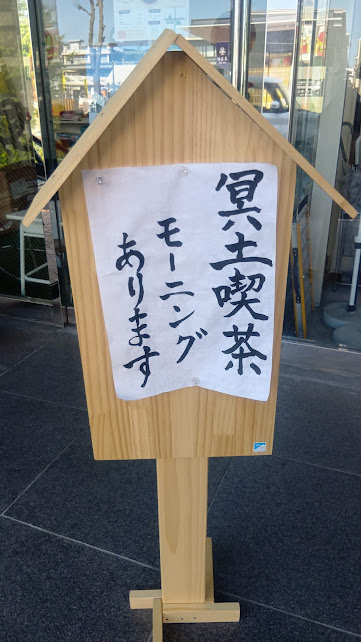 冥土喫茶
モーニング
あります